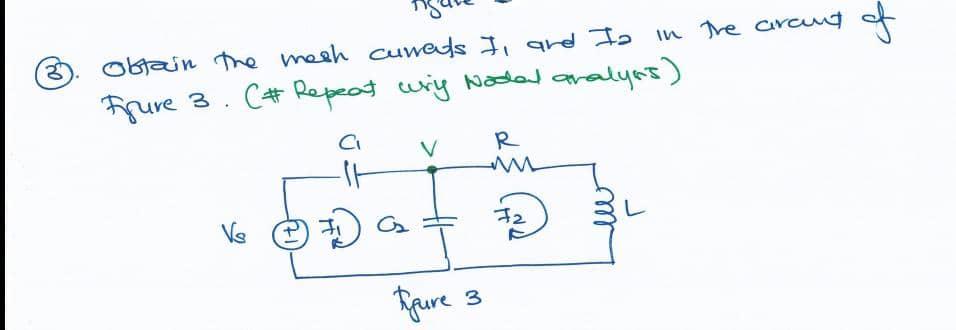 ③. Obtain the mesh currents I₁ and I₂ in the circuit of
Figure 3. (# Repeat using Nodal analysis)
C₁
V
R
Vs
+
I₁
C₂
I₂
L
Figure 3